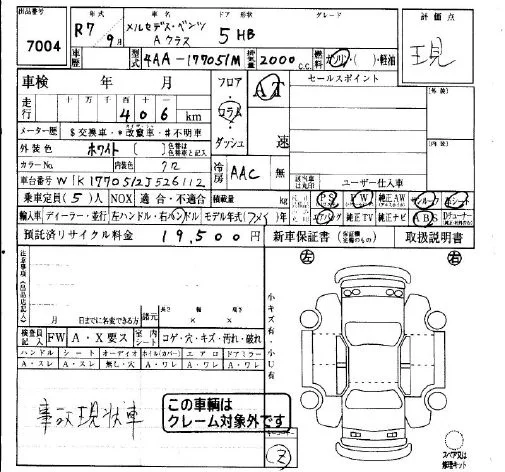 出品番号 年式 メルセデス・ベンツ ドア 形状 グレード 評価点
7004 R7 9月 Aクラス 5 HB 現
車歴 型式 4AA-177051M 排気量 2000 c.c. 燃料 ガソリン・( )・軽油
車検 年 月 フロア・コラム・ダッシュ AT 速 セールスポイント (外装)
走行 十万 万 千 百 十 一
406 km
メーター歴 $交換車・*改竄車・#不明車 (内装)
外装色 ホワイト ( ) 色替は色替車と記入
カラーNo. 内装色 クロ 冷房 AAC 無 ユーザー仕入車
車台番号 W1K1770512J526112
乗車定員 (5)人 NOX 適合・不適合 積載量 kg PS PW 純正AW サンルーフ 革シート
輸入車 ディーラー・並行 左ハンドル・右ハンドル モデル年式 年 エアバッグ 純正TV 純正ナビ ABS Dチューナー
預託済リサイクル料金 19,500円 新車保証書 取扱説明書
注意事項(出品店記入) 左 右
月 日までに名変できる方 諸元 長さ 幅 高さ × × 小キズ有・小U有
検査員記入 FW A・X要ス 室内シート コゲ・穴・キズ・汚れ・破れ
ハンドル シート オーディオ ホイル(カバー) エアロ ドアミラー
A・スレ A・スレ 無し・穴 A・ワレ A・ワレ A・ワレ
事故現状車
この車輌は
クレーム対象外です
スペア又は
修理キット